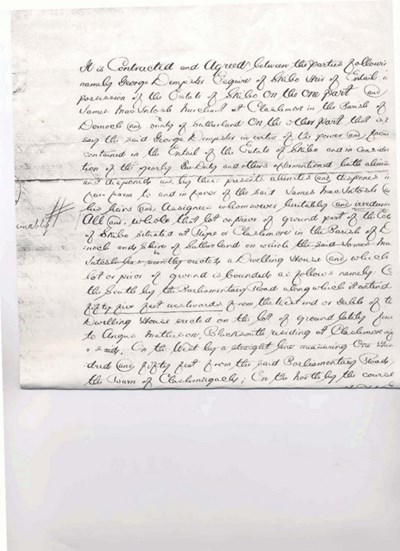 It is Contracted and Agreed between the parties following
namely George Dempster Esquire of Skibo Heir of Entail in
possession of the Estate of Skibo On the One part and
James MacIntosh Merchant at Clashmore in the Parish of
Dornoch and County of Sutherland On the other part that is to
say the said George Dempster in virtue of the powers
contained in the Entail of the Estate of Skibo and in consider
ation of the yearly and others aftermentioned hath alienated
and disponed as by these presents alienates and dispones in
feu farm to and in favor of the said James MacIntosh
his heirs and Assignees whomsoever heritably and irredeem
ably #
All and Whole that lot or piece of ground part of the
of Skibo situated at of Clashmore in the Parish of D
noch and Shire of Sutherland on which the said James Mac
Intosh has recently erected a Dwelling House and which
lot or piece of ground is bounded as follows namely
the South by the Parliamentary Road along which it extends
fifty five feet westwards from the West end or Gable of the
Dwelling House erected on the lot of ground lately
to Angus Matheson Blacksmith residing at Clashmore
On the West by a straight line measuring One Hun
dred and fifty feet from the said Parliamentary Road
the Burn of ; On the North by the course